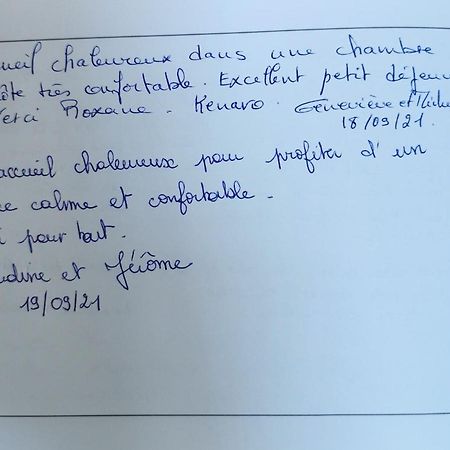 ueil chaleureux dans une chambre
ête très confortable. Excellent petit déjeun
erci Roxane. Kenavo. Geneviève et
18/09/21.
accueil chaleureux pour profiter d'un
ce calme et confortable.
i pour tout.
udine et Jérôme
19/09/21